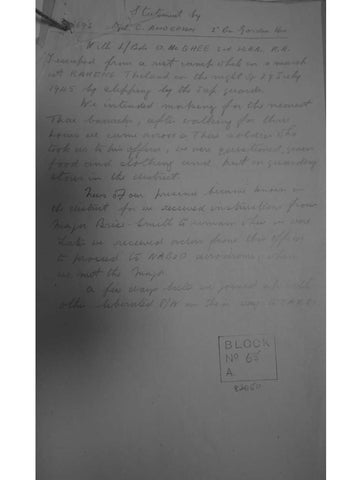 Statement by
Pte C. ANDERSON 2nd Bn Gordon Hrs
With L/Bdr O. McGHEE
I escaped from a rest camp whilst on a march
at KAKENE Thailand on the night of 29 July
1945 by slipping by the Jap guards.
We intended making for the nearest
Thai barracks, after walking for three
hours we came across a Thai soldier who
took us to his officer, we were questioned, given
food and clothing and put on guarding
stores in the district.
News of our presence became known in
the district for we received instructions from
Major Smith to remain where we were
Later we received orders from this officer
to proceed to aerodrome, where
we met the Major.
A few days later we joined up with
other liberated P/W on their way to
BLOCK
No 65
A.